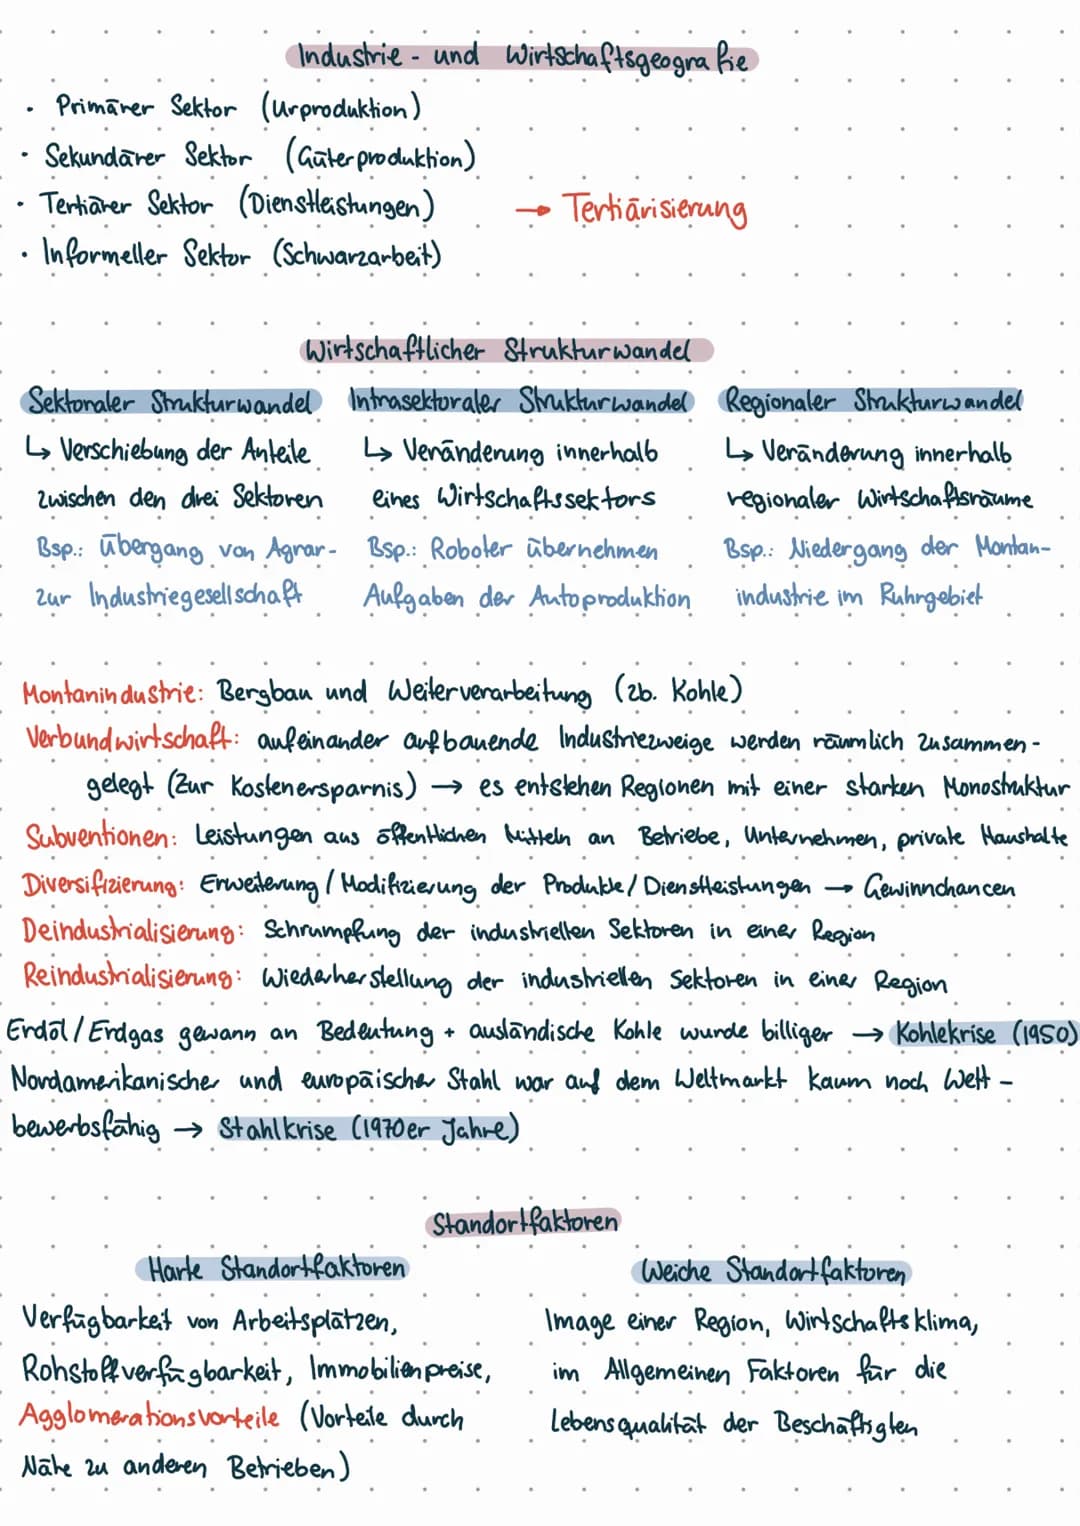 Industrie- und Wirtschaftsgeografie
• Primärer Sektor (Urproduktion)
• Sekundärer Sektor (Güterproduktion)
• Tertiärer Sektor (Dienstleistungen) → Tertiärisierung
• Informeller Sektor (Schwarzarbeit)
Wirtschaftlicher Strukturwandel
Sektoraler Strukturwandel
↳ Verschiebung der Anteile
zwischen den drei Sektoren
Bsp.: Übergang von Agrar-
zur Industriegesellschaft
Intrasektoraler Strukturwandel
↳ Veränderung innerhalb
eines Wirtschaftssektors
Bsp.: Roboter übernehmen
Aufgaben der Autoproduktion
Regionaler Strukturwandel
↳ Veränderung innerhalb
regionaler Wirtschaftsräume
Bsp.: Niedergang der Montan-
industrie im Ruhrgebiet
Montanindustrie: Bergbau und Weiterverarbeitung (zb. Kohle)
Verbundwirtschaft: aufeinander aufbauende Industriezweige werden räumlich zusammen-
gelegt (Zur Kostenersparnis) → es entstehen Regionen mit einer starken Monostruktur
Subventionen: Leistungen aus öffentlichen Mitteln an Betriebe, Unternehmen, private Haushalte
Diversifizierung: Erweiterung / Modifizierung der Produkte / Dienstleistungen → Gewinnchancen
Deindustrialisierung: Schrumpfung der industriellen Sektoren in einer Region
Reindustrialisierung: Wiederherstellung der industriellen Sektoren in einer Region
Erdöl / Erdgas gewann an Bedeutung + ausländische Kohle wurde billiger → Kohlekrise (1950)
Nordamerikanischer und europäischer Stahl war auf dem Weltmarkt kaum noch Wett-
bewerbsfähig → Stahlkrise (1970er Jahre)
Standortfaktoren
Harte Standortfaktoren
Verfügbarkeit von Arbeitsplätzen,
Rohstoffverfügbarkeit, Immobilienpreise,
Agglomerationsvorteile (Vorteile durch
Nähe zu anderen Betrieben)
Weiche Standortfaktoren
Image einer Region, Wirtschaftsklima,
im Allgemeinen Faktoren für die
Lebensqualität der Beschäftigten